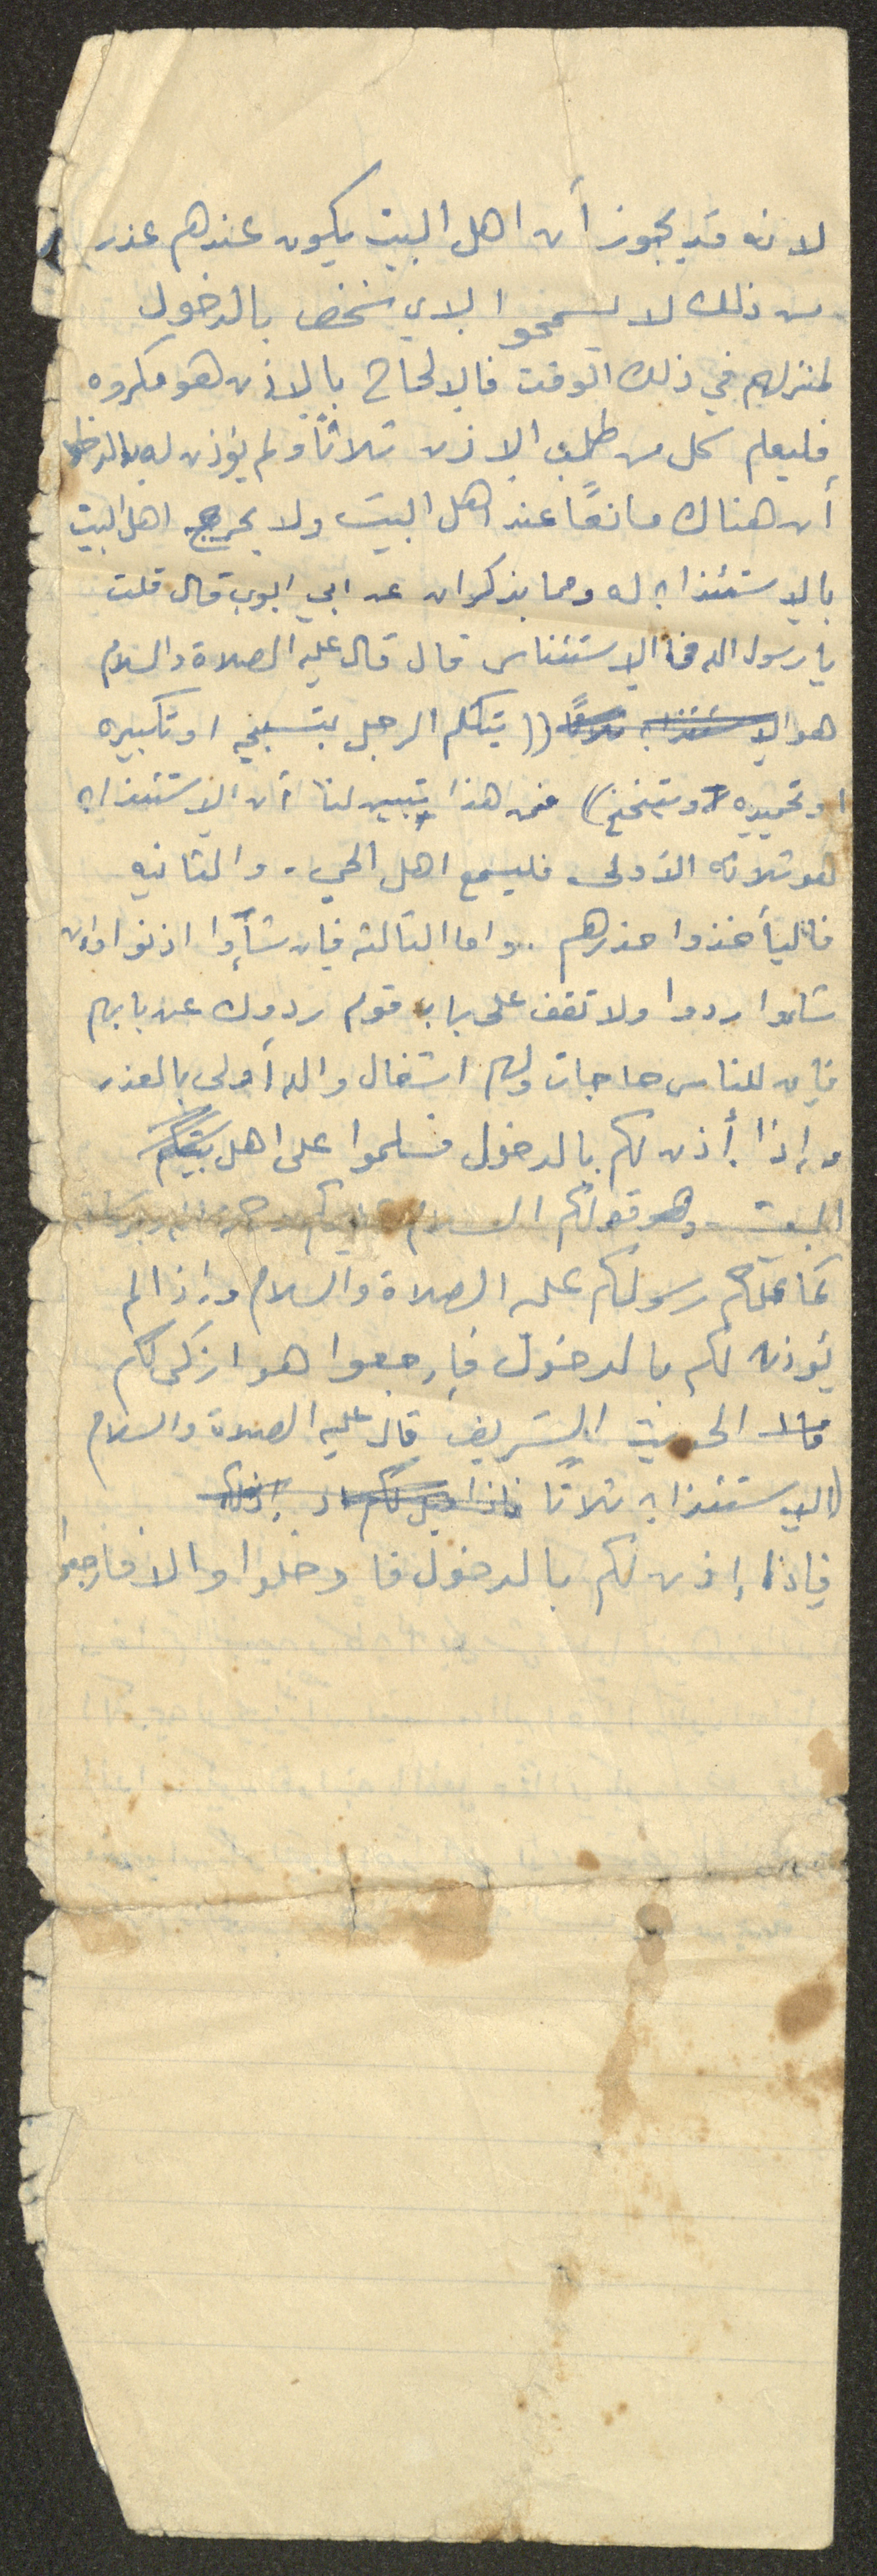 لانه قد يجوز أن اهل البيت يكون عندهم عذر
من ذلك لا يسمحوا لاي شخص بالدخول
لمنزلهم في ذلك الوقت فالإلحاح بالاذن هو مكروه
فليعلم كل من طلب الاذن ثلاثاً ولم يؤذن له بالدخول
أن هناك مانعاً عند اهل البيت ولا يحرج اهل البيت
بالإستئذان له ومما يذكر ان عن ابي ايوب قال قلت
يا رسول الله فما الإستئناس قال قال عليه الصلاة والسلام
هو الإستئذان ثلاثاً (( يتكلم الرجل بتسبيحه او تكبيره
او تحميده او يتنحنح)) فمن هذا يتبين لنا أن الاستئذان
هو ثلاثه الأولى فليسمع اهل الحي. والثانيه
فاليأخذوا حذرهم. واما الثالثه فإن شأوا اذنوا وإن
شاءوا ردوا ولا تقف على باب قوم ردوك عن بابهم
فإن للناس حاجات ولهم اشغال والله أولى بالعذر
وإذا أذن لكم بالدخول فسلموا على اهل بيتكم
البيت وهو قولكم السلام عليكم ورحمة الله وبركاته
كما علمكم رسولكم عليه الصلاة والسلام وإذا لم
يؤذن لكم بالدخول فإرجعوا هو ازكى لكم
الحديث الشريف قال عليه الصلاة والسلام
(الإستئذان ثلاثاً فإذا قيل لكم
فإذا إذن لكم بالدخول فادخلوا والا فارجعوا